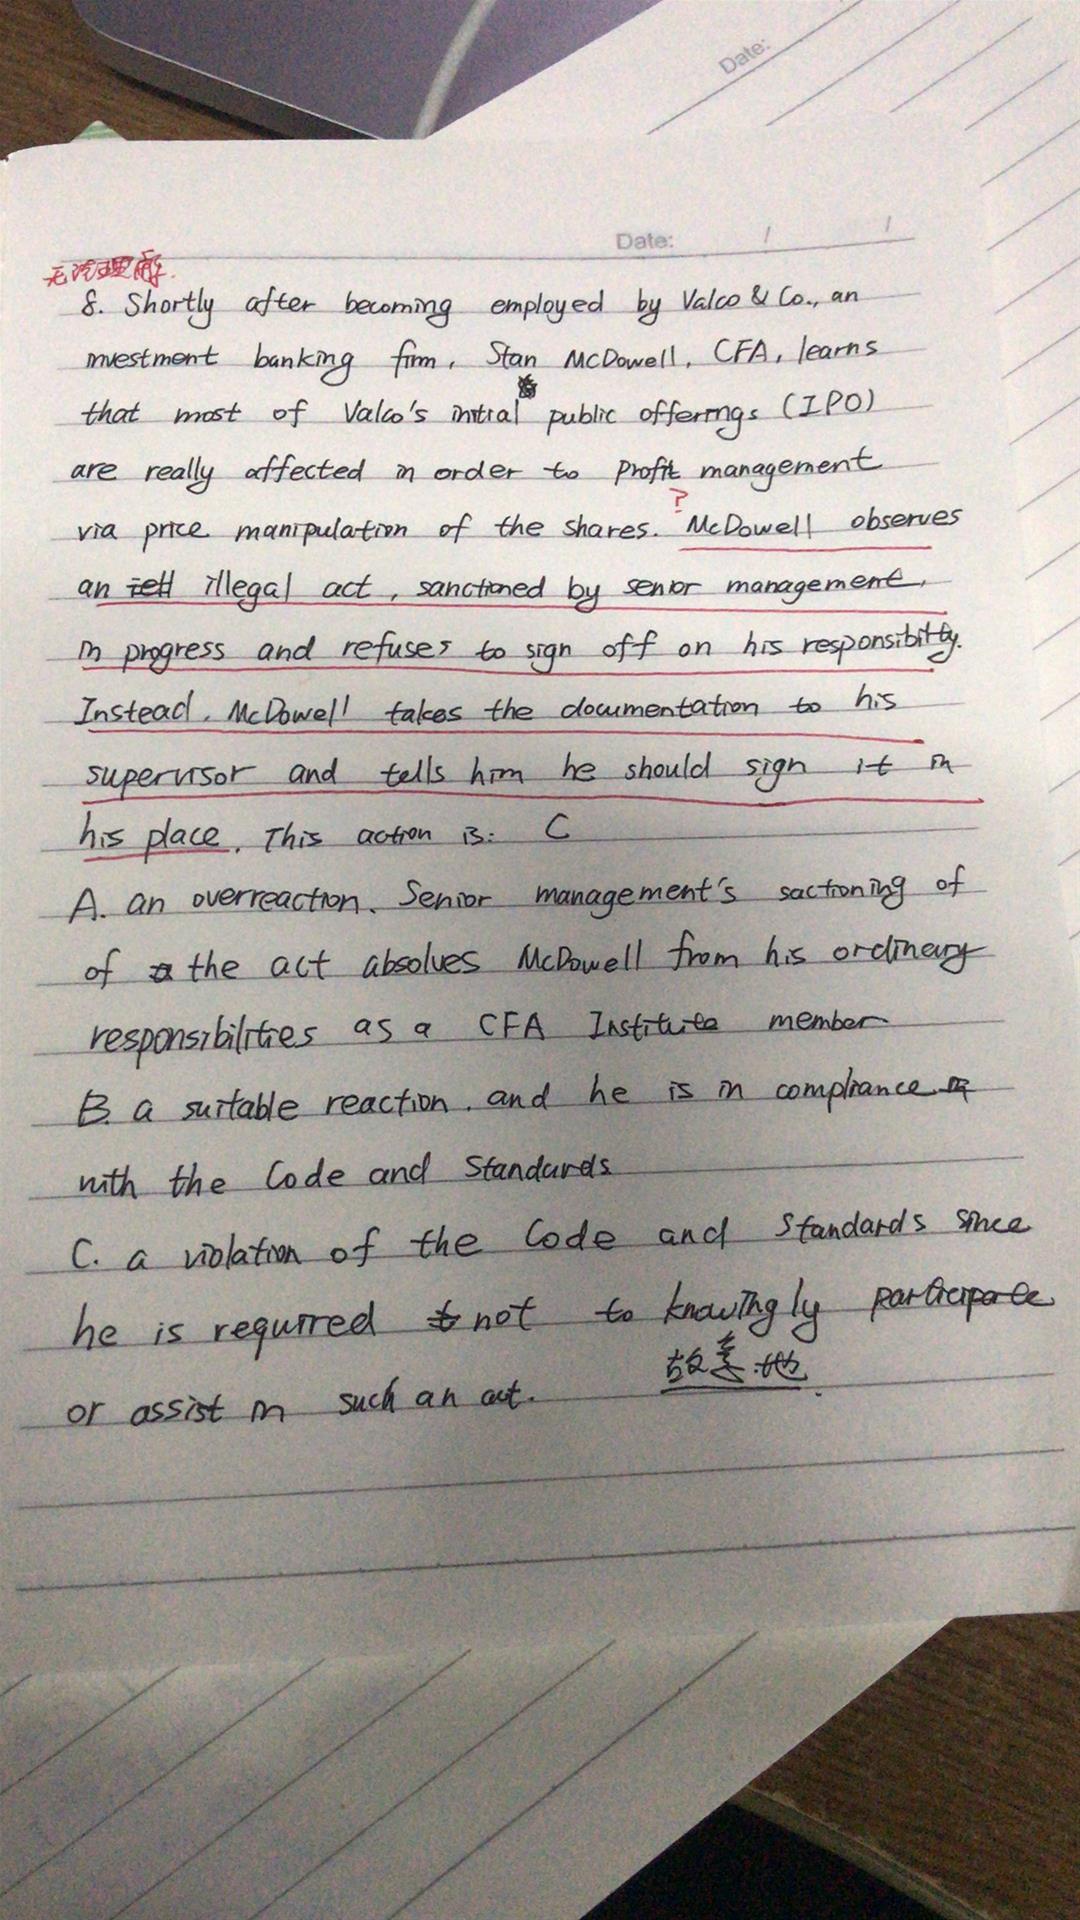 Date:
Date: / /
无法理解.
8. Shortly after becoming employed by Valco & Co., an
investment banking firm, Stan McDowell, CFA, learns
that most of Valco's initial public offerings (IPO)
are really affected in order to profit management
?
via price manipulation of the shares. McDowell observes
an illegal act, sanctioned by senior management,
in progress and refuses to sign off on his responsibility.
Instead, McDowell takes the documentation to his
supervisor and tells him he should sign it in
his place. This action is: C
A. an overreaction. Senior management's sactioning of
of the act absolves McDowell from his ordinary
responsibilities as a CFA Institute member
B. a suitable reaction, and he is in compliance
with the Code and Standards
C. a violation of the Code and Standards since
he is required not to knowingly participate
故意地
or assist in such an act.